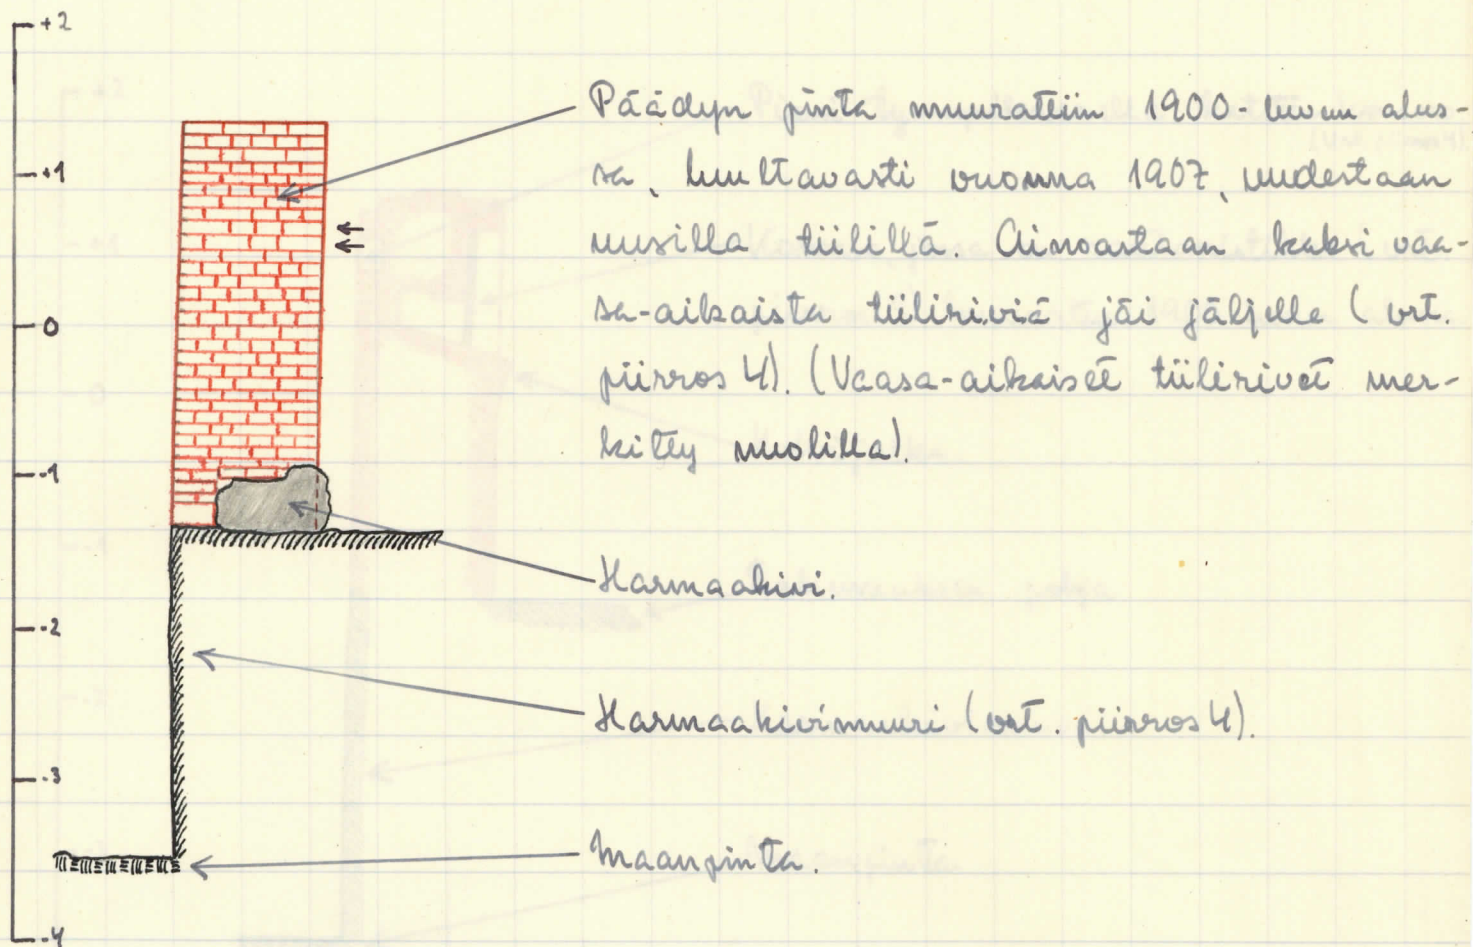 +2
+1
0
-1
-2
-3
-4
Päädyn pinta muurattiin 1900-luvun alus-
sa, luultavasti vuonna 1907, uudestaan
uusilla tiilillä. Ainoastaan kaksi vaa-
sa-aikaista tiiliriviä jäi jäljelle (vrt.
piirros 4). (Vaasa-aikaiset tiilirivit mer-
kitty nuolilla).
Harmaakivi.
Harmaakivimuuri (vrt. piirros 4).
Maanpinta.